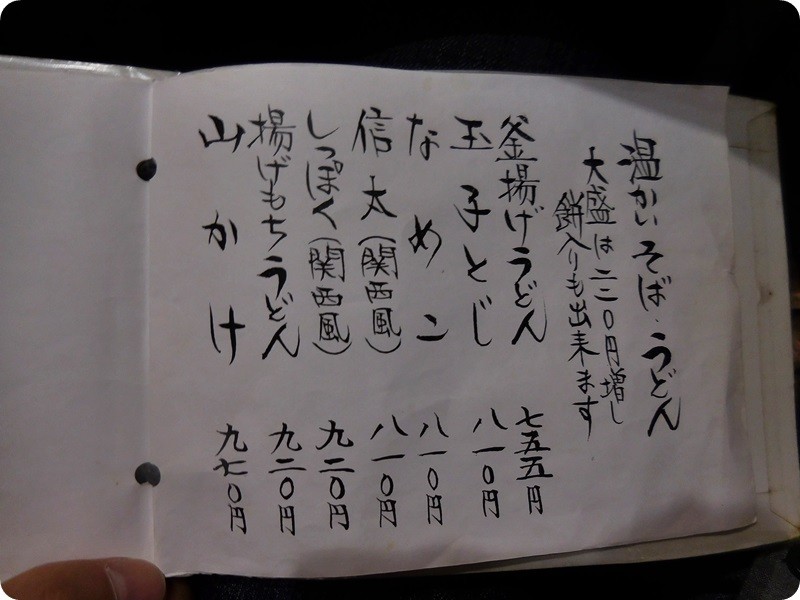 温かいそば・うどん
大盛は二二〇円増し
餅入りも出来ます
釜揚げうどん 七五五円
玉子とじ 八一〇円
なめこ 八一〇円
信太(関西風) 八一〇円
しっぽく(関西風) 九二〇円
揚げもちうどん 九二〇円
山かけ 九七〇円